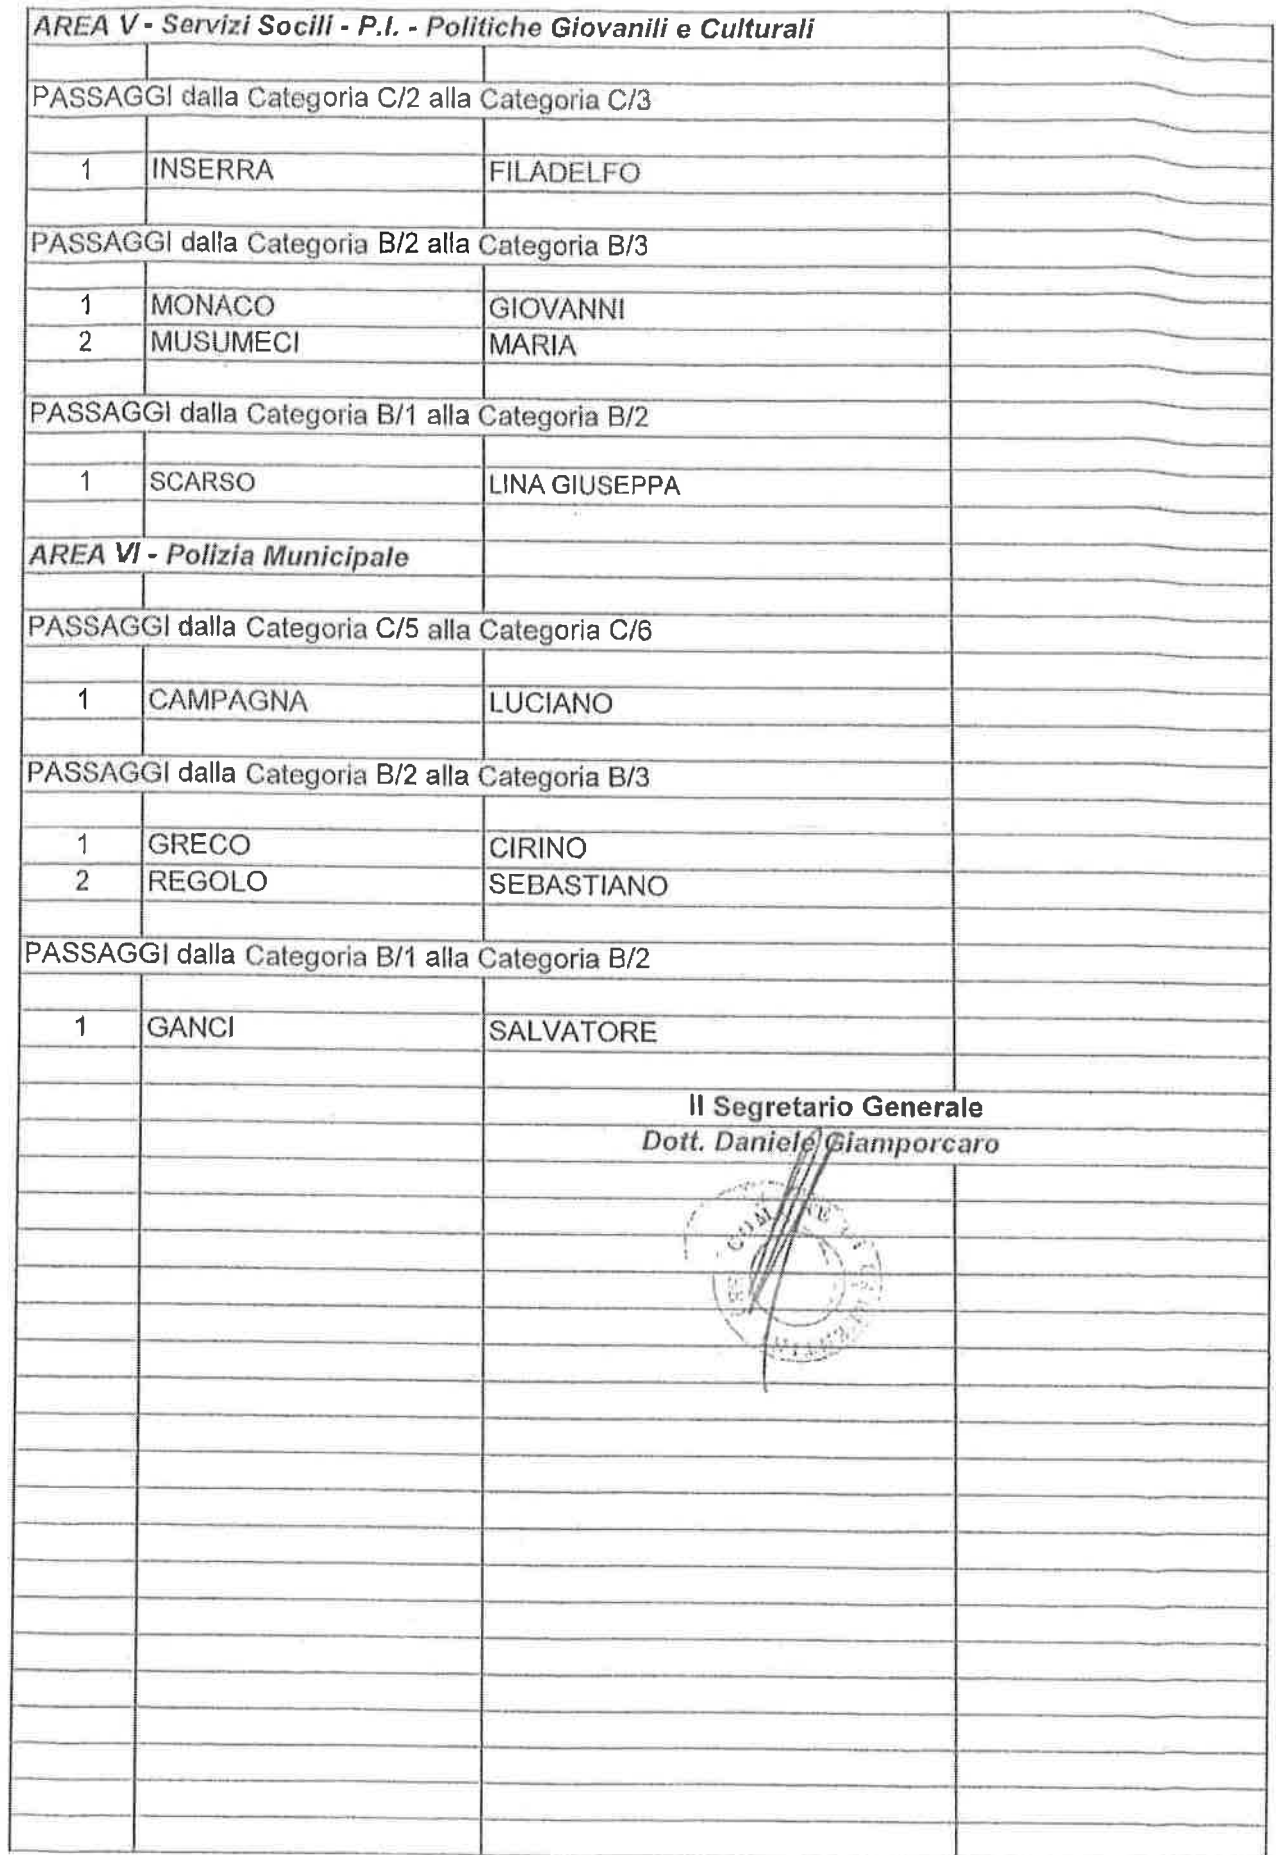 AREA V - Servizi Socili - P.I. - Politiche Giovanili e Culturali
PASSAGGI dalla Categoria C/2 alla Categoria C/3
1 INSERRA FILADELFO
PASSAGGI dalla Categoria B/2 alla Categoria B/3
1 MONACO GIOVANNI
2 MUSUMECI MARIA
PASSAGGI dalla Categoria B/1 alla Categoria B/2
1 SCARSO LINA GIUSEPPA
AREA VI - Polizia Municipale
PASSAGGI dalla Categoria C/5 alla Categoria C/6
1 CAMPAGNA LUCIANO
PASSAGGI dalla Categoria B/2 alla Categoria B/3
1 GRECO CIRINO
2 REGOLO SEBASTIANO
PASSAGGI dalla Categoria B/1 alla Categoria B/2
1 GANCI SALVATORE
Il Segretario Generale
Dott. Daniele Giamporcaro